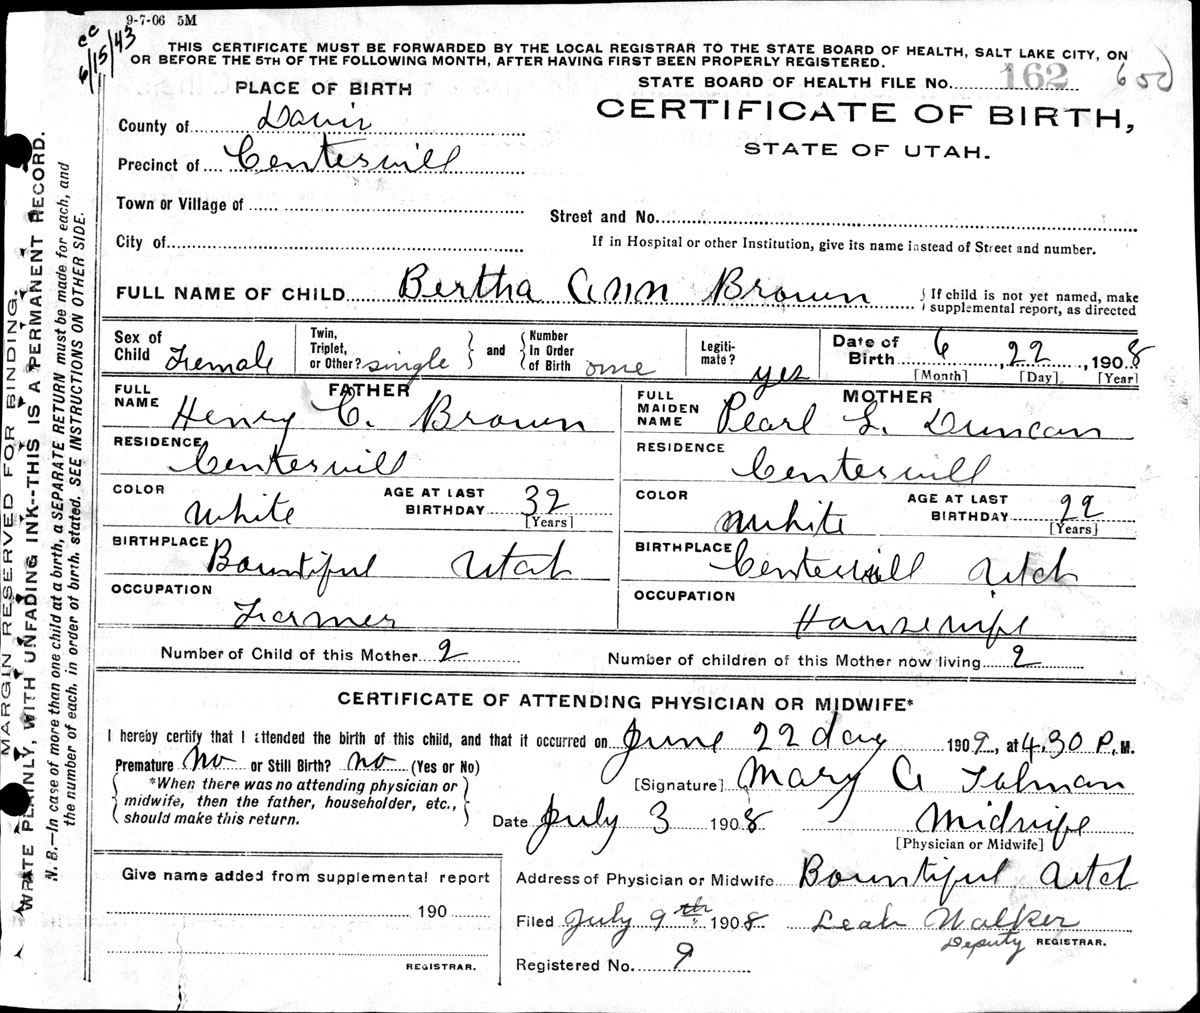 9-7-06 5M
cc
6/15/43
THIS CERTIFICATE MUST BE FORWARDED BY THE LOCAL REGISTRAR TO THE STATE BOARD OF HEALTH, SALT LAKE CITY, ON
OR BEFORE THE 5TH OF THE FOLLOWING MONTH, AFTER HAVING FIRST BEEN PROPERLY REGISTERED.
STATE BOARD OF HEALTH FILE No. 162 600
PLACE OF BIRTH
CERTIFICATE OF BIRTH,
STATE OF UTAH.
County of Davis
Precinct of Centervill
Town or Village of
Street and No.
City of
If in Hospital or other Institution, give its name instead of Street and number.
FULL NAME OF CHILD Bertha Ann Brown { If child is not yet named, make
supplemental report, as directed
Sex of Child Female
Twin, Triplet, or Other? single } and { Number In Order of Birth one
Legiti-mate? yes
Date of Birth 6, 22, 1908
[Month] [Day] [Year]
FATHER
FULL NAME Henry C. Brown
MOTHER
FULL MAIDEN NAME Pearl L. Duncan
RESIDENCE Centervill
RESIDENCE Centervill
COLOR White AGE AT LAST BIRTHDAY 32 [Years]
COLOR White AGE AT LAST BIRTHDAY 22 [Years]
BIRTHPLACE Bountiful Utah
BIRTHPLACE Centervill Utah
OCCUPATION Farmer
OCCUPATION Housewife
Number of Child of this Mother 2
Number of children of this Mother now living 2
CERTIFICATE OF ATTENDING PHYSICIAN OR MIDWIFE*
I hereby certify that I attended the birth of this child, and that it occurred on June 22 day 1909, at 4.30 P.M.
Premature No or Still Birth? no (Yes or No)
{ *When there was no attending physician or
midwife, then the father, householder, etc.,
should make this return. }
[Signature] Mary A Tolman
Date July 3 1908 Midwife
[Physician or Midwife]
Give name added from supplemental report
190
REGISTRAR.
Address of Physician or Midwife Bountiful Utah
Filed July 9th 1908 Leah Walker
Deputy REGISTRAR.
Registered No. 9
MARGIN RESERVED FOR BINDING.
WRITE PLAINLY, WITH UNFADING INK--THIS IS A PERMANENT RECORD.
N. B.—In case of more than one child at a birth, a SEPARATE RETURN must be made for each, and
the number of each, in order of birth, stated. SEE INSTRUCTIONS ON OTHER SIDE.